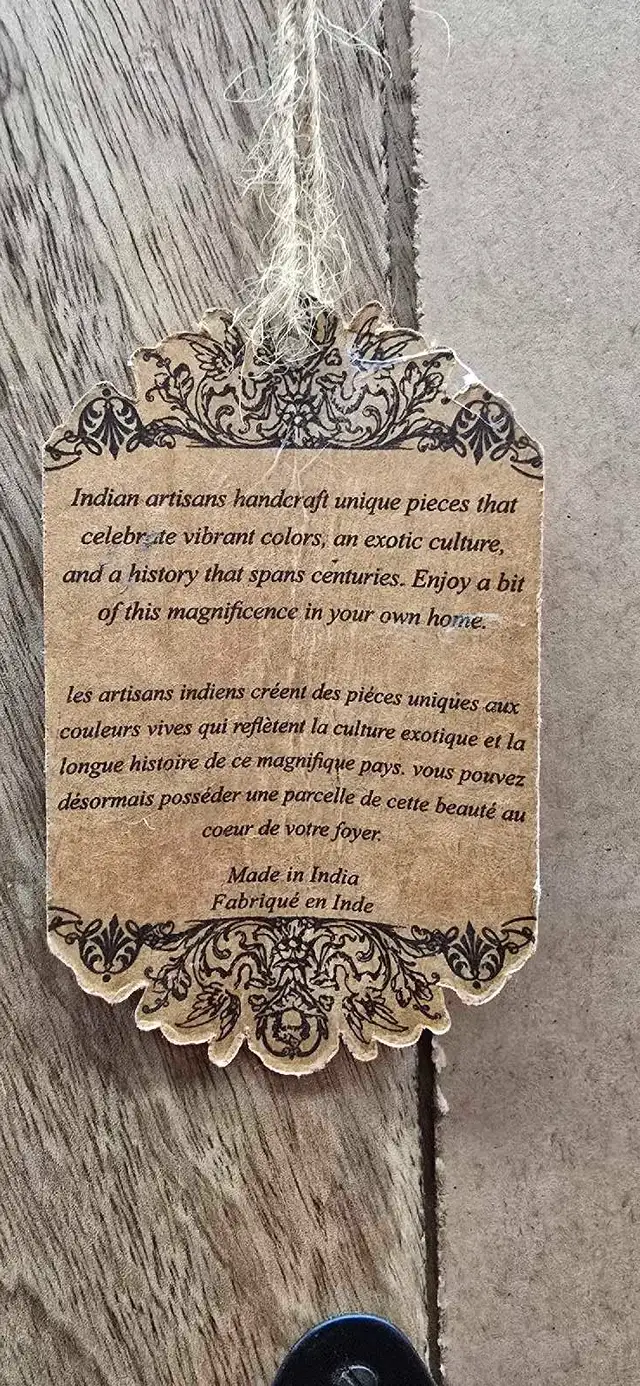 Indian artisans handcraft unique pieces that
celebrate vibrant colors, an exotic culture,
and a history that spans centuries. Enjoy a bit
of this magnificence in your own home.
les artisans indiens créent des piéces uniques aux
couleurs vives qui reflètent la culture exotique et la
longue histoire de ce magnifique pays. vous pouvez
désormais posséder une parcelle de cette beauté au
coeur de votre foyer.
Made in India
Fabriqué en Inde